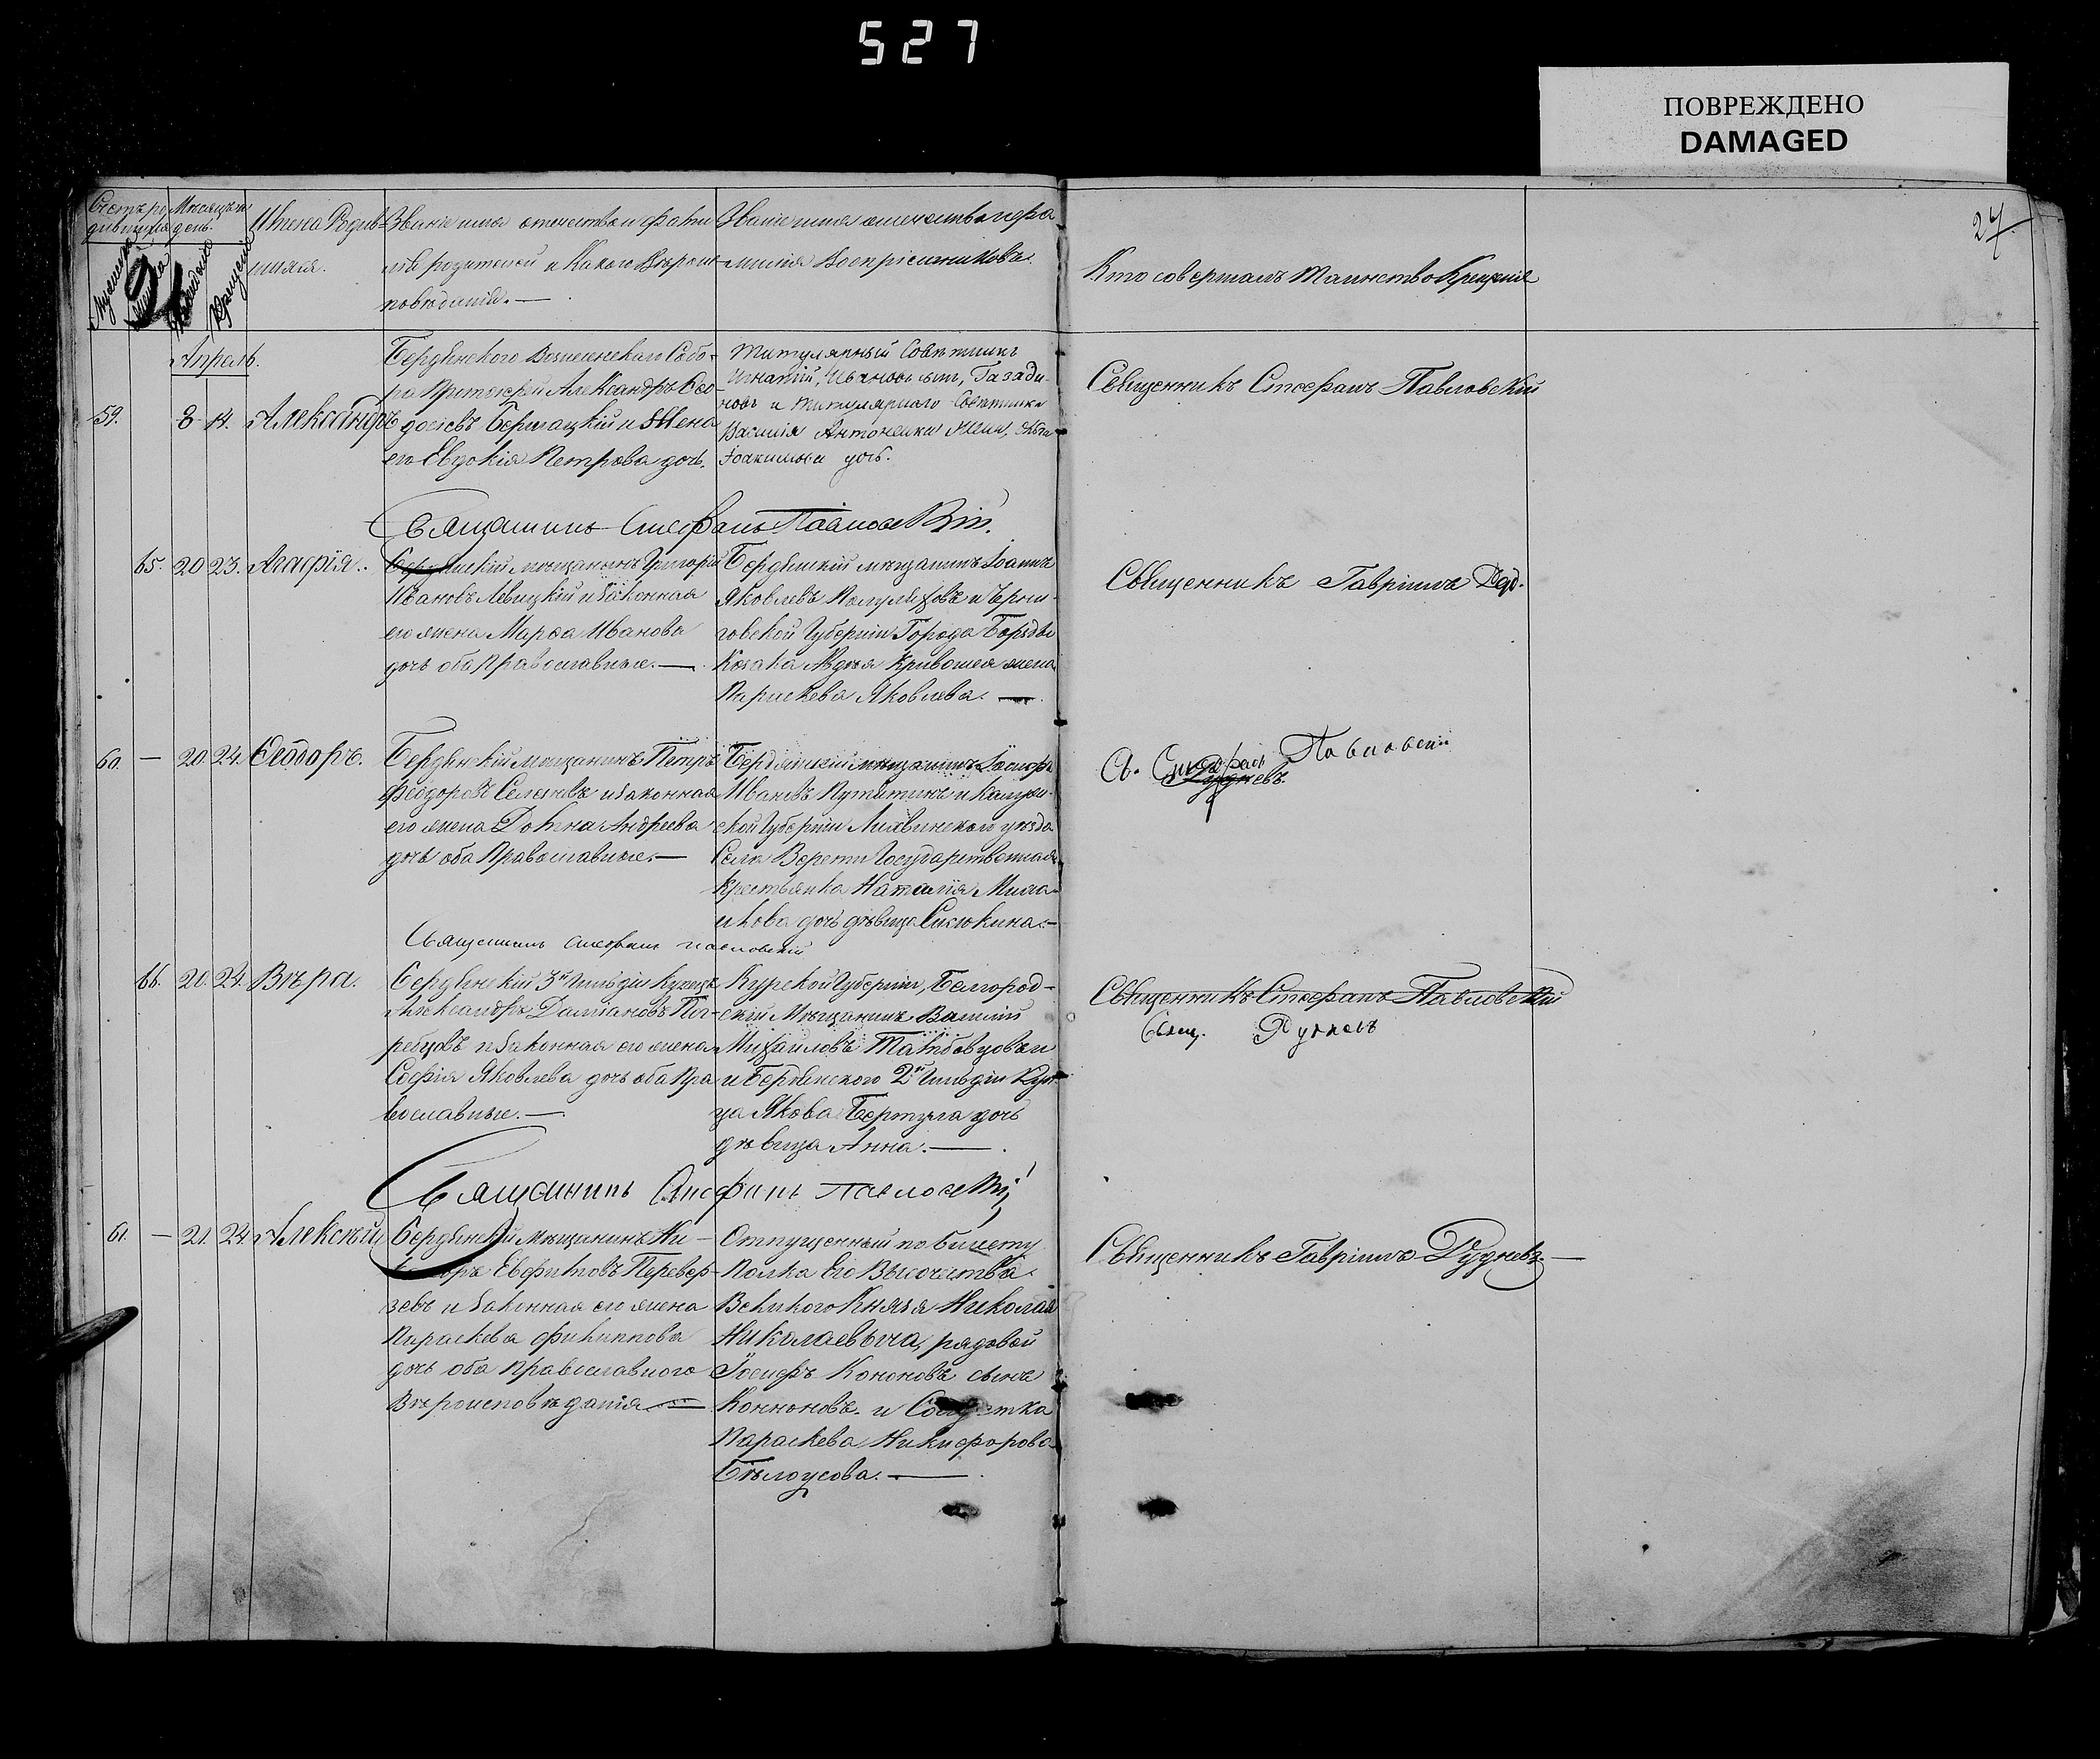 527
ПОВРЕЖДЕНО
DAMAGED
27
Счетъ ро Мѣсяцъ и Имена Родив- Званіе имя отечество и фами Званіе имя отечество и фа
дившихся день. шихся. лія родителей и Какого Вѣроис- милія Воспріемниковъ. Кто совершалъ Таинство Крещенія
повѣданія. —
Апрель.
Бердянского Вознесенскаго Собо-
ра Протоіерей Александръ Ѳео
59. 8 14. Александръ досіевъ и Жена
его Евдокія Петрова дочь.
Титулярный Совѣтникъ
Игнатій, Ивановъ сынъ,
новъ и Титулярнаго Совѣтника
Василія Антоненки Жена,
Іоакимова дочь.
Священникъ Стефанъ Павловскій
Священникъ Стефанъ Павловскій
65. 20 23. Агафія. Бердянскій мещанинъ Григорій
Ивановъ Левицкій и Законная
его жена Марѳа Иванова
дочь оба православные. —
Бердянскій мещанинъ Іоаннъ
Яковлевъ и Черни-
говской Губерніи Города Борзны
Козака Кривошея жена
Параскева Яковлева. —
Священникъ Гавріилъ Дуд.
60. — 20. 24. Ѳеодоръ. Бердянскій мещанинъ Петръ
Феодоровъ и Законная
его жена Домна Андреева
дочь оба Православные. —
Бердянскій мещанинъ Іосифъ
Ивановъ и Калуж-
ской Губерніи Лихвинскаго уѣзда
Села Государственная
Крестьянка Наталія
дочь дѣвица Сисюкина. —
Св. Стефанъ Павловскій
Дудневъ.
Священникъ Стефанъ Павловскій
66. 20. 24. Вѣра. Бердянскій 3й Гильдіи Купецъ
Александръ Даміановъ Пог-
ребовъ и Законная его жена
Софія Яковлева дочь оба Пра
вославные. —
Курской Губерніи, Белгород-
скій Мещанинъ Василій
Михайловъ и
и Бердянского 2й Гильдіи Куп
ца Якова дочь
дѣвица Анна. —
Священникъ Стефанъ Павловскій
Свящ. Дудневъ
Священникъ Стефанъ Павловскій
61. — 21. 24. Алексѣй Бердянскій Мещанинъ Ни-
Евфимовъ Перевер-
зевъ и Законная его жена
Параскева Филиппова
дочь оба православного
Вѣроисповѣданія —
Отпущенный по билету
Полка Его Высочества
Великого Князя Николая
Николаевича, рядовой
Іосифъ Кононовъ сынъ
Кононовъ. и
Параскева Никифорова
Бѣлоусова. —
Священникъ Гавріилъ Дудневъ. —